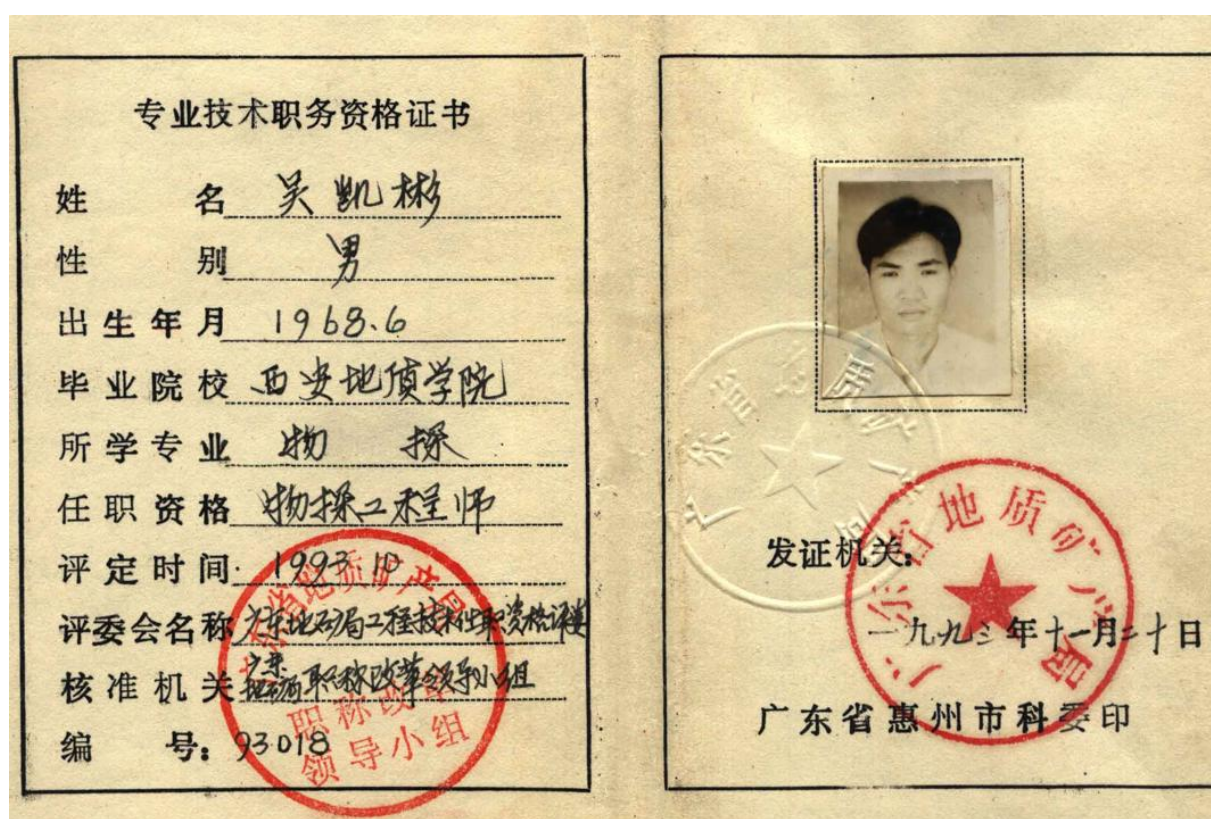 专业技术职务资格证书
姓名 吴凯彬
性别 男
出生年月 1968.6
毕业院校 西安地质学院
所学专业 物探
任职资格 物探工程师
评定时间 1993.10
评委会名称 广东地矿局工程技术任职资格评委
核准机关 广东地矿局职称改革领导小组
编号：93018
广东省地质矿产局
职称改革
领导小组
发证机关：
广东省地质矿产局
一九九三年十一月二十日
广东省惠州市科委印